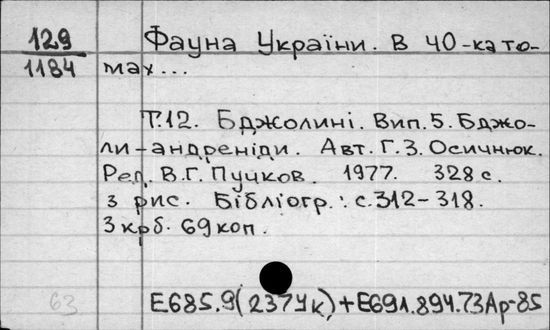 129
1184
Фауна України. В 40-ка то-
мах...
Т.12. Бджолині. Вип. 5. Бджо-
ли-андреніди. Авт. Г.З. Осичнюк.
Ред. В.Г. Пучков. 1977. 328 с.
з рис. Бібліогр.: с. 312-318.
3 крб. 69 коп.
63
Е685.9(237Ук)+Е691.894.73Ар-85